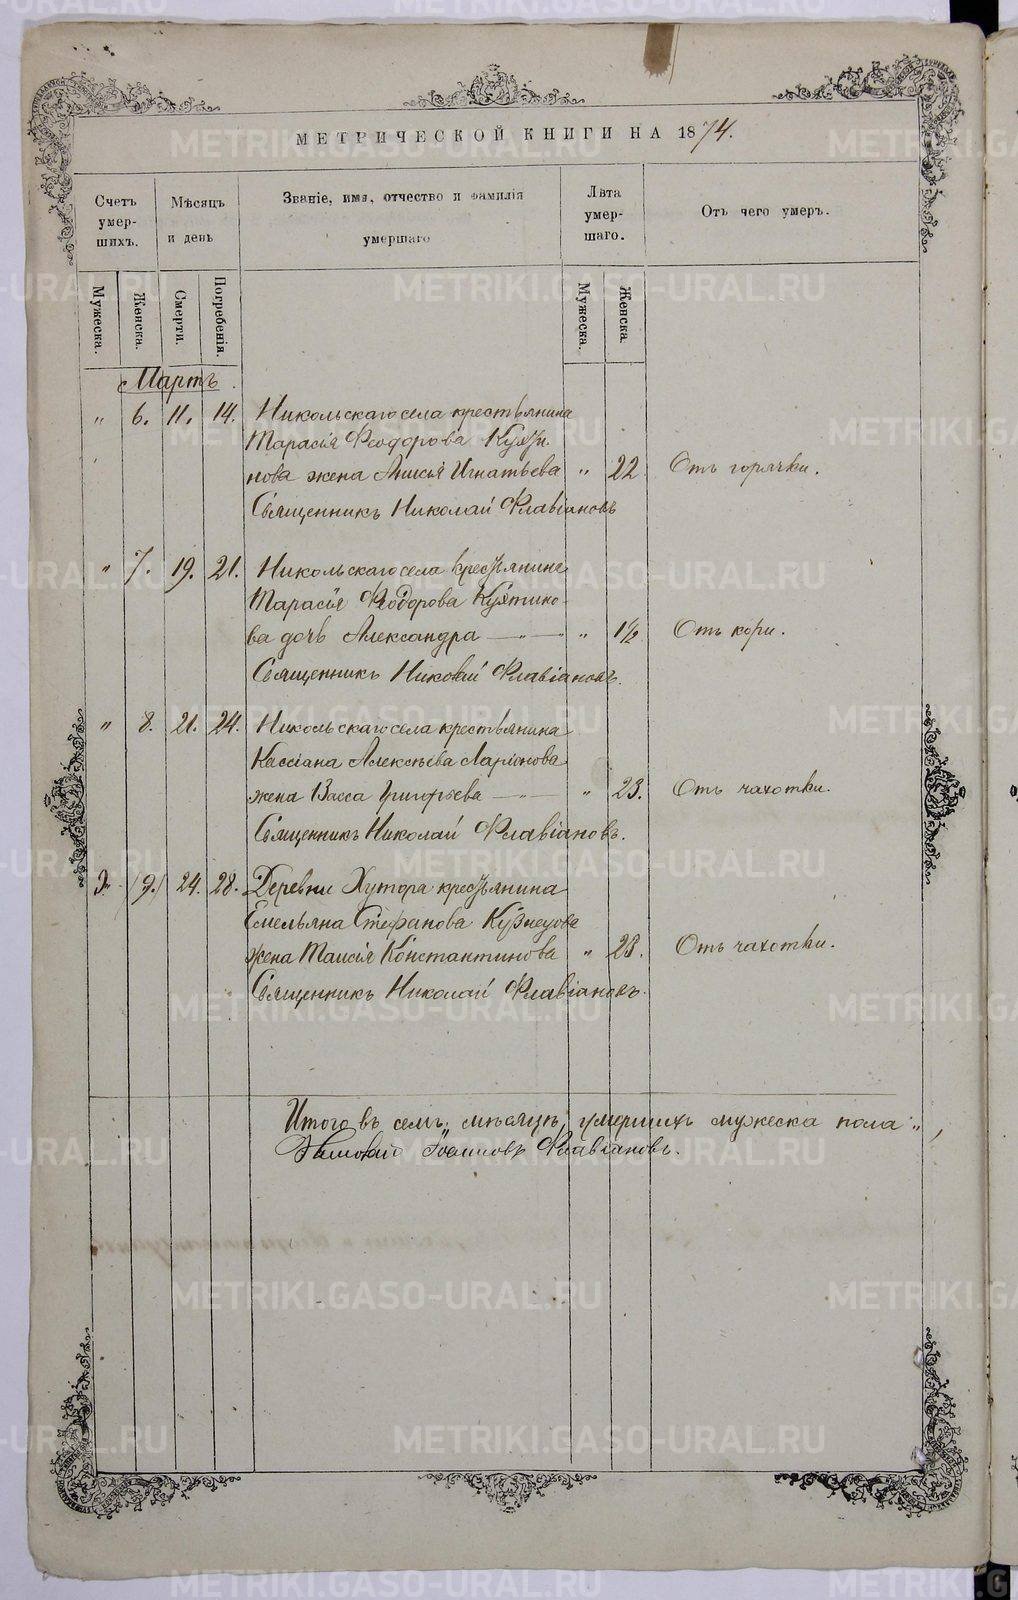 МЕТРИЧЕСКОЙ КНИГИ НА 1874.
Счетъ умер- шихъ.
Мѣсяцъ и день
Званіе, имя, отчество и фамилія умершаго
Лѣта умер- шаго.
Отъ чего умеръ.
Мужеска. Женска. Смерти. Погребенія. Мужеска. Женска.
Мартъ
" 6. 11. 14. Никольскаго села крестьянина
Тарасія Ѳеодорова
нова жена Анисія Игнатьева " 22 Отъ горячки.
Священникъ Николай Флавіановъ
" 7. 19. 21. Никольскаго села крестьянина
Тарасія Ѳеодорова Кухтино-
ва дочь Александра — " — " 1½ Отъ кори.
Священникъ Николай Флавіановъ.
" 8. 21. 24. Никольскаго села крестьянина
Кассіана Алексѣева Ларіонова
жена Васса Григорьева — " 23. Отъ чахотки.
Священникъ Николай Флавіановъ.
9. 24. 28. Деревни Хутора крестьянина
Емельяна Стефанова Кузнецова
жена Таисія Константинова " 23. Отъ чахотки.
Священникъ Николай Флавіановъ.
Итого въ семъ мѣсяцѣ умершихъ мужеска пола "
Флавіановъ.
METRIKI.GASO-URAL.RU